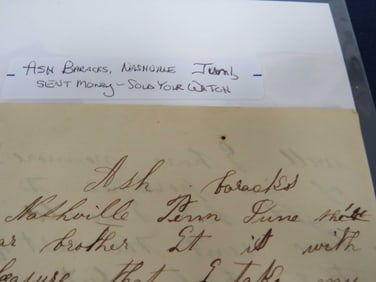 ASH BARACKS, NASHVILLE
SENT MONEY - SOLD YOUR WATCH
Ash baracks
Nathville Tenn June
ar brother It is with
leasure that I take my